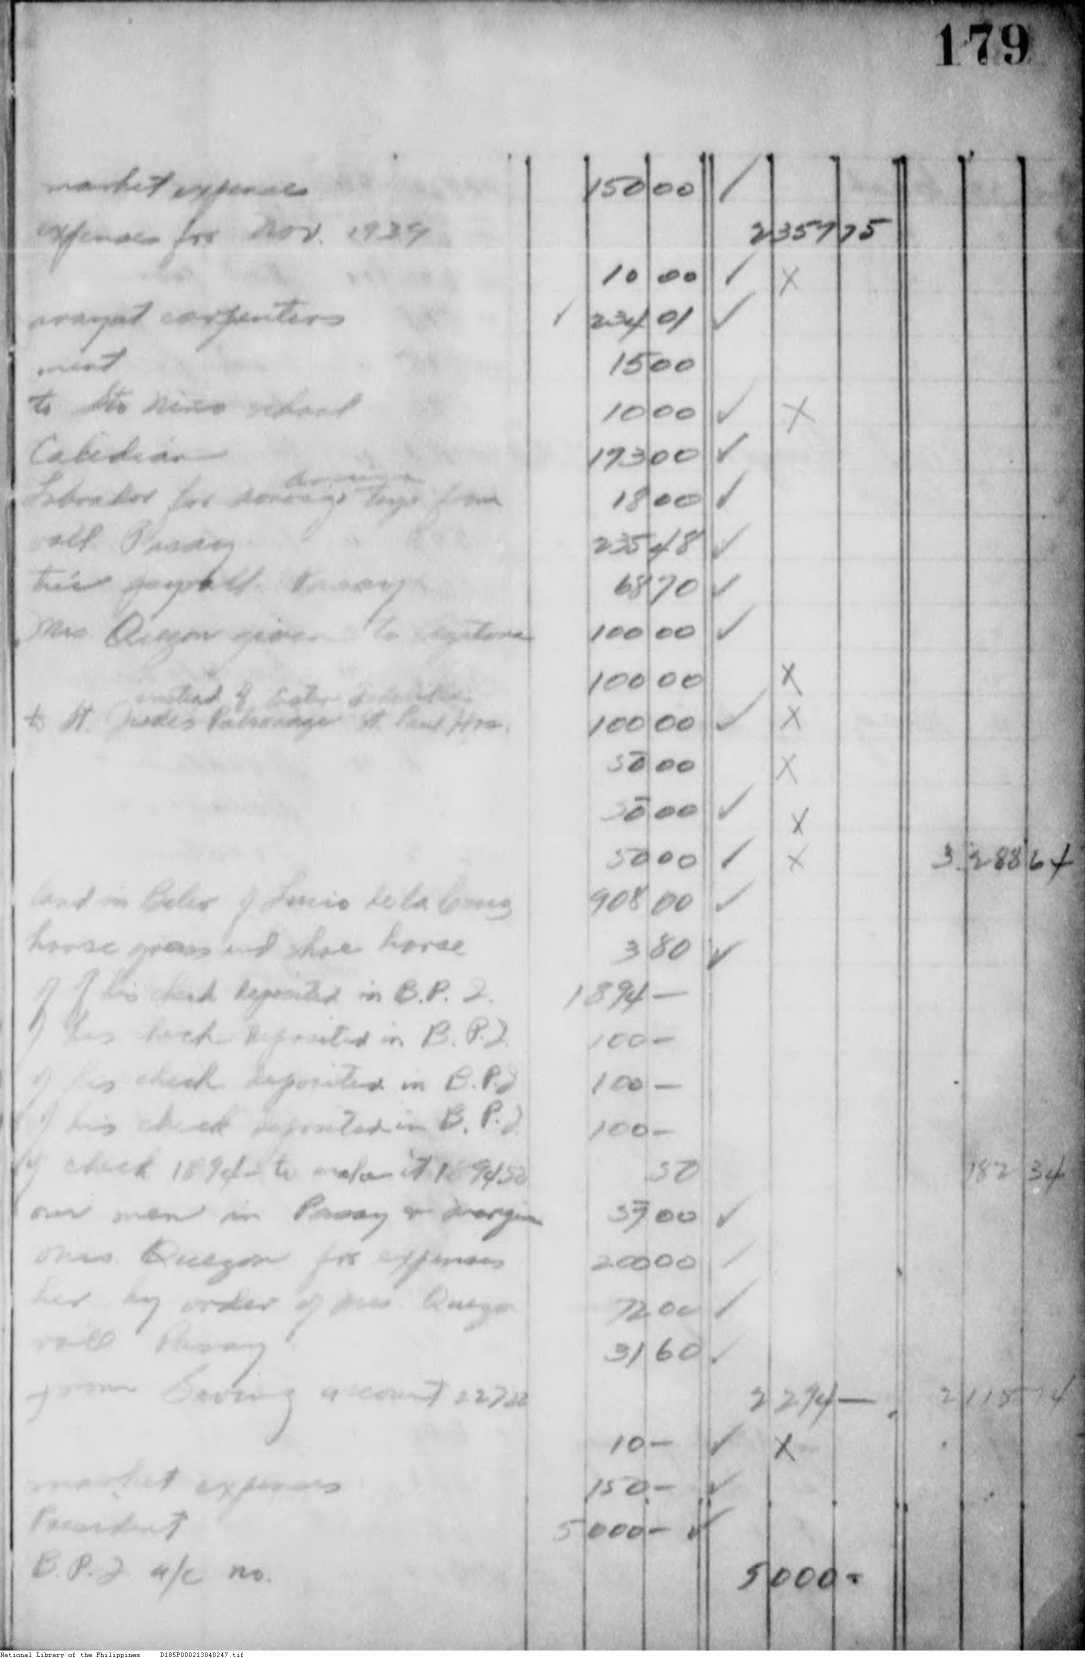 179
market expenses 150 00 ✓
expenses for Nov. 1939 2359 75
10 00 ✓ x
arayat carpenters ✓ 234 01 ✓
15 00
to Sto Nino school 10 00 ✓ x
Caledian 173 00 ✓
Labrador for from 18 00 ✓
roll Pasay 235 48 ✓
payroll Pasay 68 70 ✓
Mrs Quezon given to 100 00 ✓
100 00 x
instead of
to St. Judes Patronage St. Paul Hos. 100 00 ✓ x
50 00 x
50 00 ✓ x
50 00 ✓ x 3 288 64
land in Baler of Lucio de la 908 00 ✓
horse grass and shoe horse 3 80 ✓
of his check deposited in B.P.I. 1894 —
of his check deposited in B.P.I. 100 —
of his check deposited in B.P.I. 100 —
of his check deposited in B.P.I. 100 —
of check 1894- to make it 1894.50 50 182 34
our men in Pasay 57 00 ✓
Mrs. Quezon for expenses 200 00 ✓
her by order of Mrs. Quezon 72 00 ✓
roll Pasay 31 60 ✓
from Saving account 2294 — 2115 74
10 — ✓ x
market expenses 150 — ✓
President 5000 — ✓
B.P.I a/c no. 5000 -
National Library of the Philippines D185P000213040247.tif